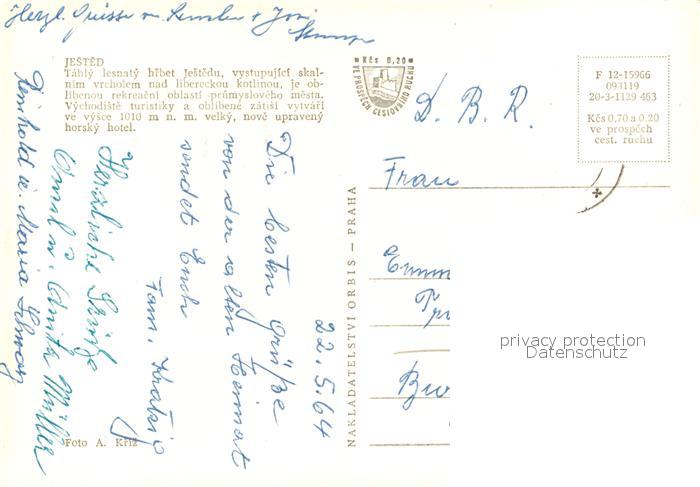 Herzl. Grüsse v.
JEŠTĚD
Táhlý lesnatý hřbet Ještědu, vystupující skal-
ním vrcholem nad libereckou kotlinou, je ob-
líbenou rekreační oblastí průmyslového města.
Východiště turistiky a oblíbené zátiší vytváří
ve výšce 1010 m n. m. velký, nově upravený
horský hotel.
22.5.64
Die besten Grüße
von der alten Heimat
sendet Euch
Fam.
Herzliche Grüße
Emil u. Anita Müller
Reinhold u. Maria
Foto A. Kříž
NAKLADATELSTVÍ ORBIS — PRAHA
Kčs 0,20
VE PROSPĚCH CESTOVNÍHO RUCHU
F 12-15966
093119
20-3-1129 463
Kčs 0,70 a 0,20
ve prospěch
cest. ruchu
D. B. R.
Frau
privacy protection
Datenschutz